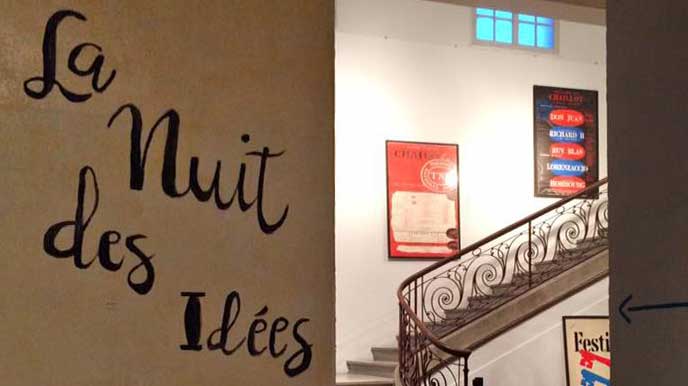 La
Nuit
des
Idées
CHAILLOT
DON JUAN
RICHARD II
RUY BLAS
LORENZACCIO
HOMBOURG
Festi